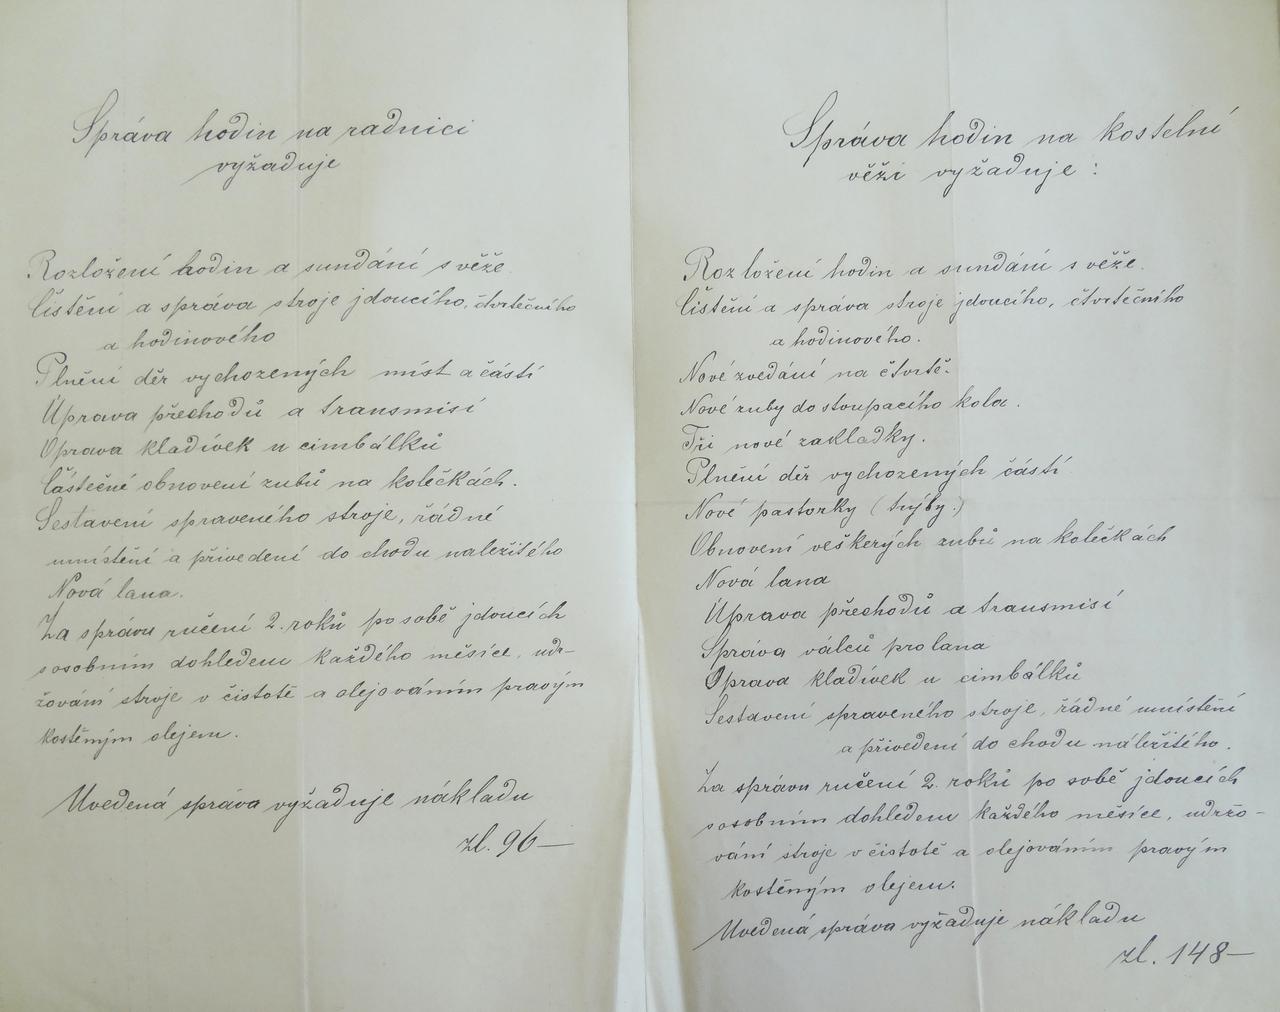 Správa hodin na radnici
vyžaduje
Rozložení hodin a sundání s věže.
Čištění a správa stroje jdoucího, čtvrtečního
a hodinového
Plnění děr vychozených míst a částí
Úprava přechodů a transmisí
Oprava kladívek u cimbálků
Částečné obnovení zubů na kolečkách.
Sestavení spraveného stroje, řádné
umístění a přivedení do chodu naležitého
Nová lana.
Za správu ručení 2. roků po sobě jdoucích
sosobním dohledem každého měsíce, udr-
žování stroje v čistotě a olejováním pravým
kostěným olejem.
Uvedená správa vyžaduje nákladu
zl. 96—
Správa hodin na kostelní
věži vyžaduje :
Rozložení hodin a sundání s věže.
Čištění a správa stroje jdoucího, čtvrtečního
a hodinového.
Nové zvedání na čtvrtě.
Nové zuby do stoupacího kola.
Tři nové zakladky.
Plnění děr vychozených částí
Nové pastorky (trýby.)
Obnovení veškerých zubů na kolečkách
Nová lana
Úprava přechodů a transmisí
Správa válců pro lana
Oprava kladívek u cimbálků
Sestavení spraveného stroje, řádné umístění
a přivedení do chodu náležitého.
Za správu ručení 2. roků po sobě jdoucích
sosobním dohledem každého měsíce, udržo-
vání stroje v čistotě a olejováním pravým
kostěným olejem.
Uvedená správa vyžaduje nákladu
zl. 148—